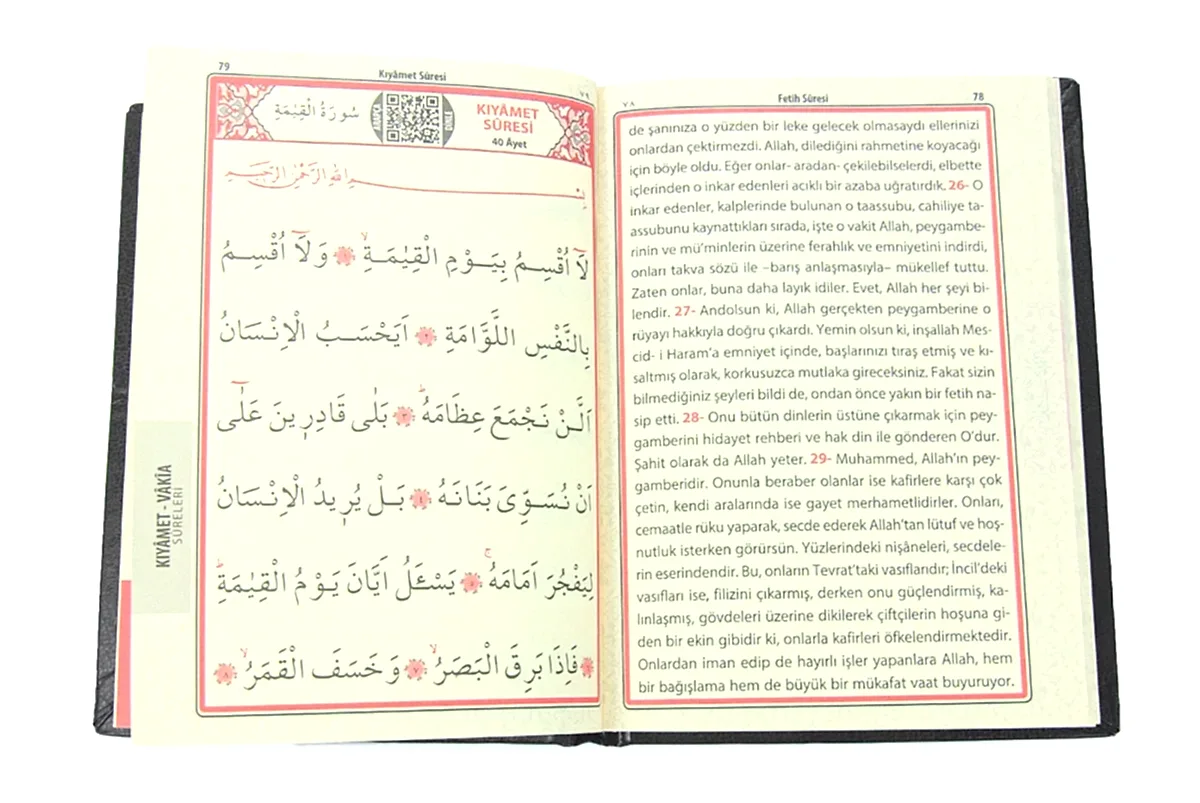 79
Kıyâmet Sûresi
٧٩
سُورَةُ الْقِيٰمَةِ
KIYÂMET
SÛRESİ
40 Âyet
بِسْمِ اللّٰهِ الرَّحْمٰنِ الرَّحِيمِ
لَٓا اُقْسِمُ بِيَوْمِ الْقِيٰمَةِۙ ﴿١﴾ وَلَٓا اُقْسِمُ
بِالنَّفْسِ اللَّوَّامَةِ ﴿٢﴾ اَيَحْسَبُ الْاِنْسَانُ
اَلَّنْ نَجْمَعَ عِظَامَهُۜ ﴿٣﴾ بَلٰى قَادِر۪ينَ عَلٰٓى
اَنْ نُسَوِّىَ بَنَانَهُ ﴿٤﴾ بَلْ يُر۪يدُ الْاِنْسَانُ
لِيَفْجُرَ اَمَامَهُۚ ﴿٥﴾ يَسْـَٔلُ اَيَّانَ يَوْمُ الْقِيٰمَةِۜ
﴿٦﴾ فَاِذَا بَرِقَ الْبَصَرُۙ ﴿٧﴾ وَخَسَفَ الْقَمَرُۙ ﴿٨﴾
KIYÂMET - VÂKİA
SÛRELERİ
٧٨
Fetih Sûresi
78
de şanınıza o yüzden bir leke gelecek olmasaydı ellerinizi
onlardan çektirmezdi. Allah, dilediğini rahmetine koyacağı
için böyle oldu. Eğer onlar- aradan- çekilebilselerdi, elbette
içlerinden o inkar edenleri acıklı bir azaba uğratırdık. 26- O
inkar edenler, kalplerinde bulunan o taassubu, cahiliye ta-
assubunu kaynattıkları sırada, işte o vakit Allah, peygambe-
rinin ve mü'minlerin üzerine ferahlık ve emniyetini indirdi,
onları takva sözü ile –barış anlaşmasıyla– mükellef tuttu.
Zaten onlar, buna daha layık idiler. Evet, Allah her şeyi bi-
lendir. 27- Andolsun ki, Allah gerçekten peygamberine o
rüyayı hakkıyla doğru çıkardı. Yemin olsun ki, inşallah Mes-
cid- i Haram'a emniyet içinde, başlarınızı tıraş etmiş ve kı-
saltmış olarak, korkusuzca mutlaka gireceksiniz. Fakat sizin
bilmediğiniz şeyleri bildi de, ondan önce yakın bir fetih na-
sip etti. 28- Onu bütün dinlerin üstüne çıkarmak için pey-
gamberini hidayet rehberi ve hak din ile gönderen O'dur.
Şahit olarak da Allah yeter. 29- Muhammed, Allah'ın pey-
gamberidir. Onunla beraber olanlar ise kafirlere karşı çok
çetin, kendi aralarında ise gayet merhametlidirler. Onları,
cemaatle rüku yaparak, secde ederek Allah'tan lütuf ve hoş-
nutluk isterken görürsün. Yüzlerindeki nişâneleri, secdele-
rin eserindendir. Bu, onların Tevrat'taki vasıflarıdır; İncil'deki
vasıfları ise, filizini çıkarmış, derken onu güçlendirmiş, ka-
lınlaşmış, gövdeleri üzerine dikilerek çiftçilerin hoşuna gi-
den bir ekin gibidir ki, onlarla kafirleri öfkelendirmektedir.
Onlardan iman edip de hayırlı işler yapanlara Allah, hem
bir bağışlama hem de büyük bir mükafat vaat buyuruyor.